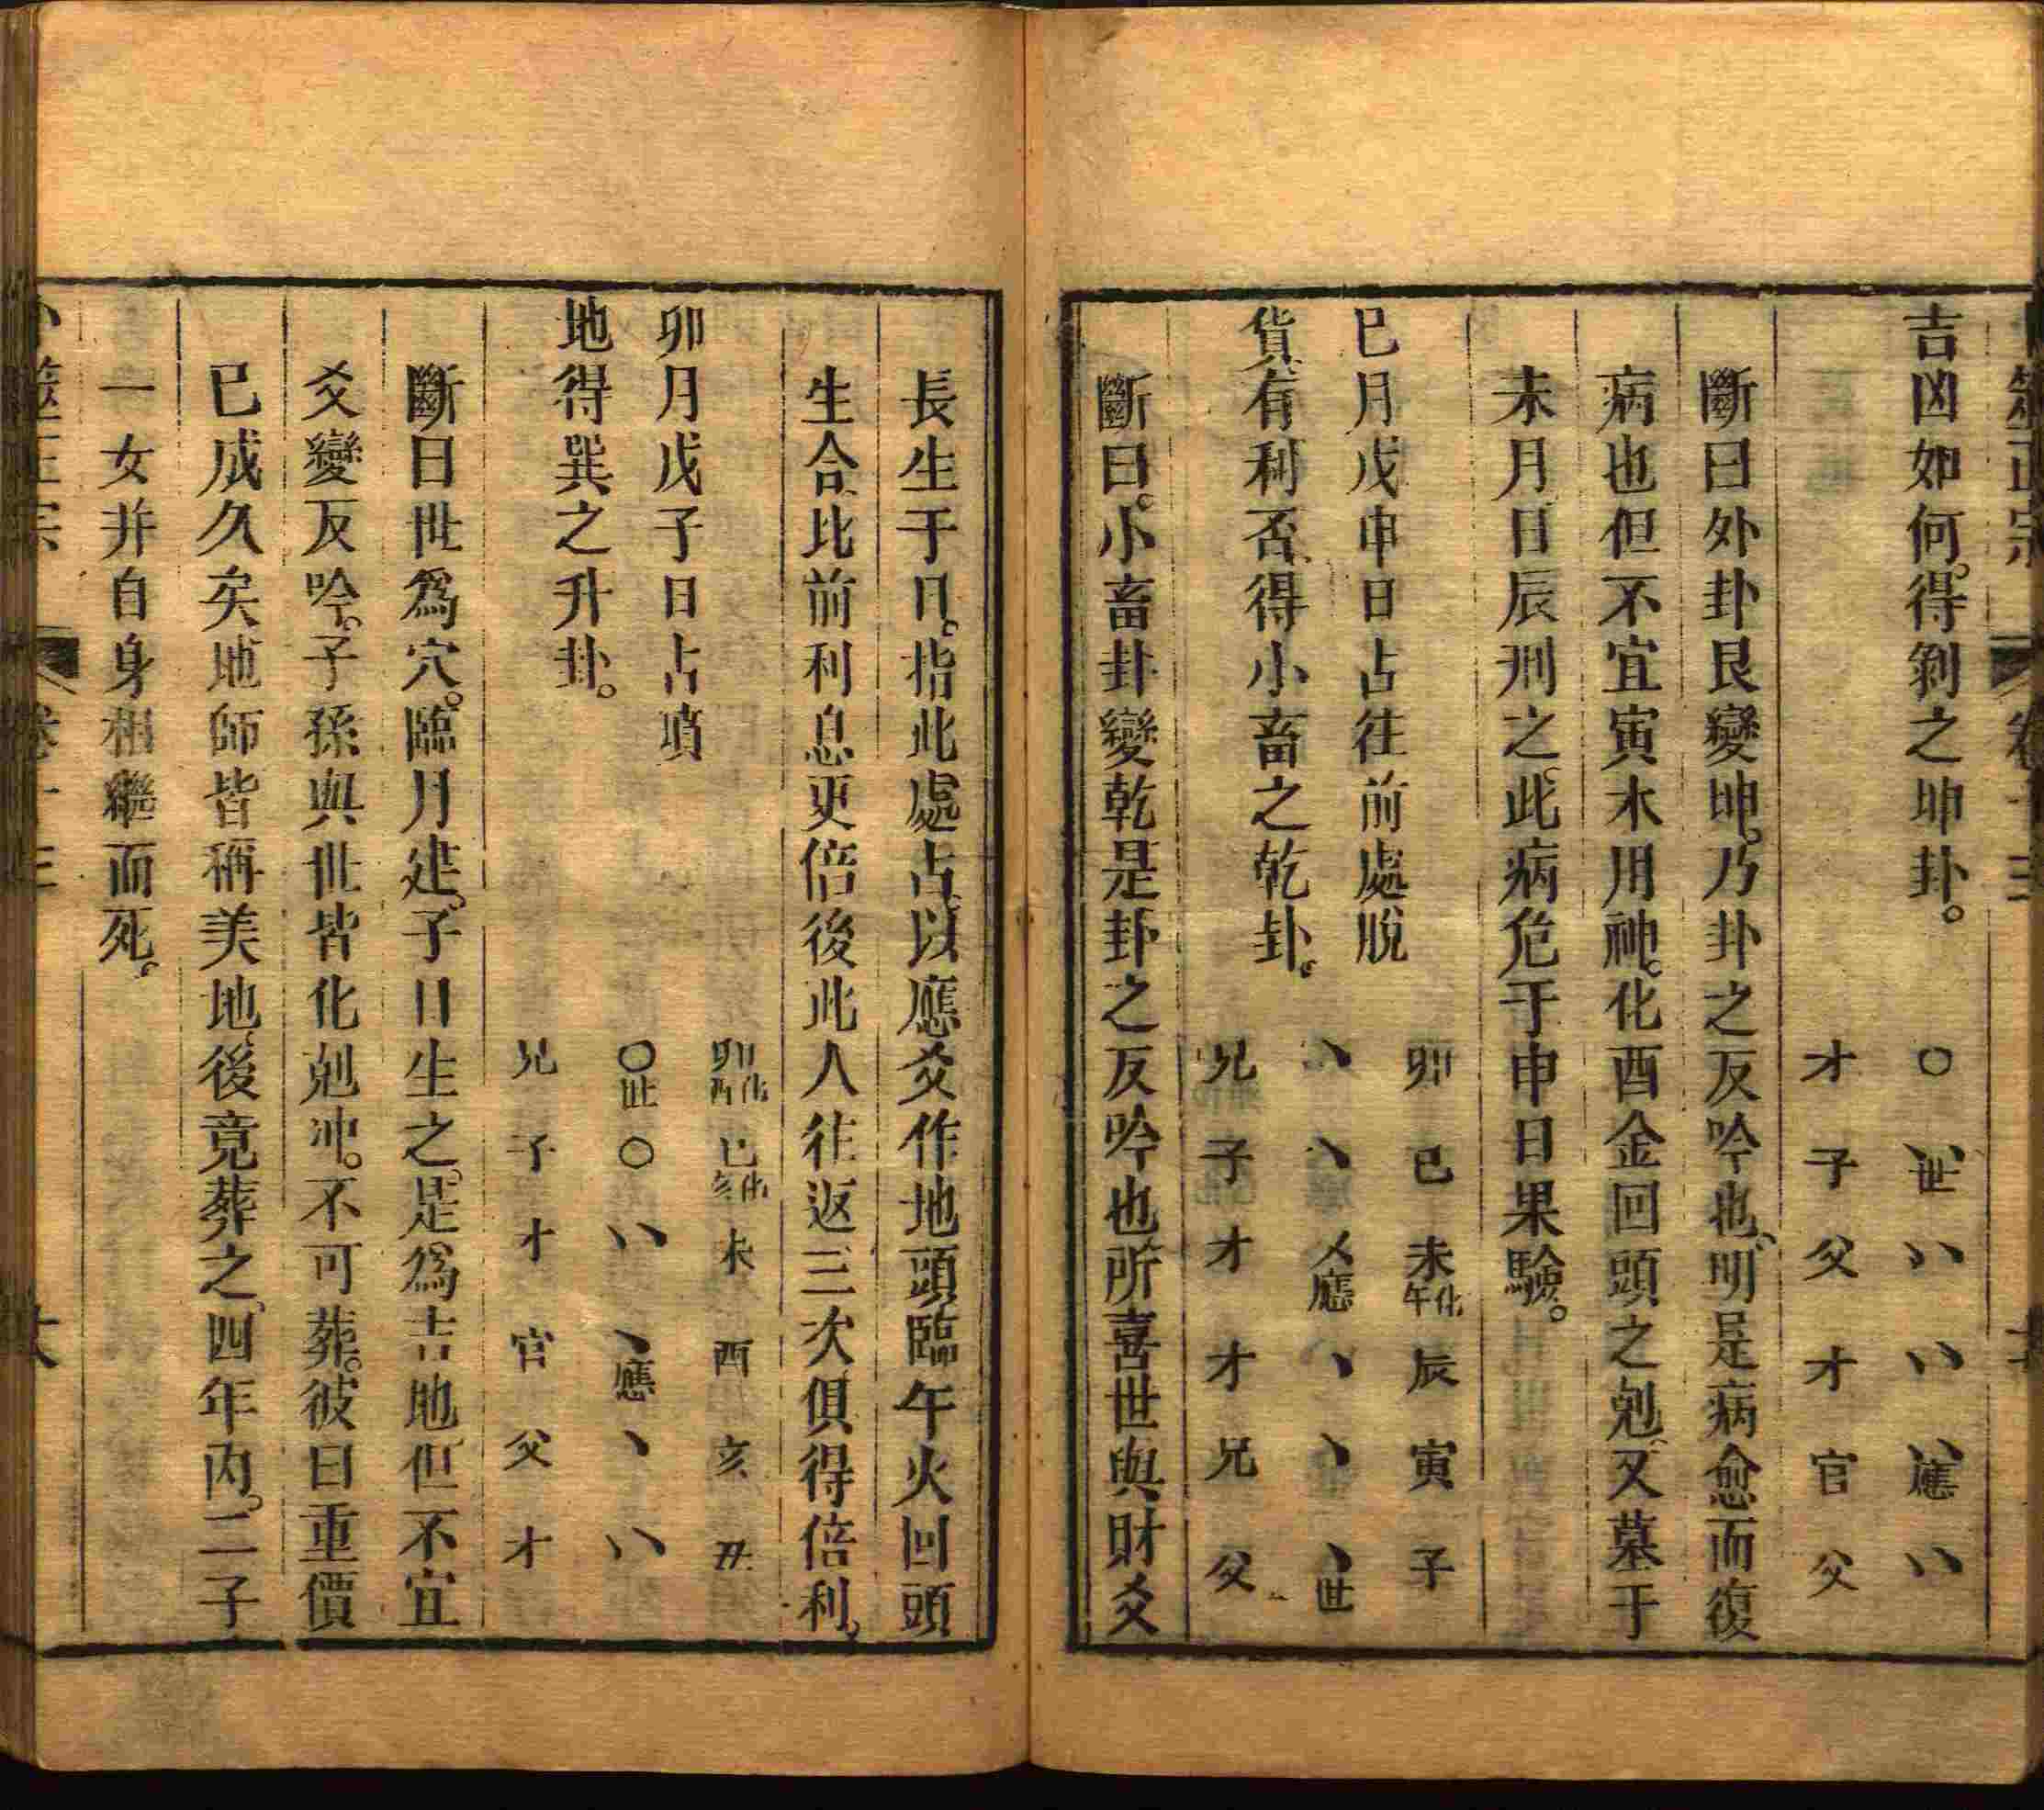 吉凶如何。得剝之坤卦。
〇 〃世 〃 〃 〃應 〃
才 子 父 才 官 父
斷曰外卦艮變坤。乃卦之反吟也。明是病愈而復
病也但不宜寅木用神。化酉金回頭之剋。又墓于
未月日辰刑之。此病危于申日果驗。
巳月戊申日占往前處脫
貨。有利否。得小畜之乾卦。
卯 巳 未化午 辰 寅 子
、 、 乂應 、 、 、世
兄 子 才 才 兄 父
斷曰。小畜卦變乾是卦之反吟也所喜世與財爻
長生于日。指此處占。以應爻作地頭臨午火回頭
生合。比前利息更倍後此人往返三次俱得倍利。
卯月戊子日占墳
地得巽之升卦。
卯化酉 巳化亥 未 酉 亥 丑
〇世 〇 〃 、應 、 〃
兄 子 才 官 父 才
斷曰世爲穴。臨月建。子日生之。是爲吉地但不宜
爻變反吟。子孫與世皆化剋冲。不可葬。彼曰重價
已成久矣地師皆稱美地。後竟葬之、四年內。二子
一女并自身相繼而死。